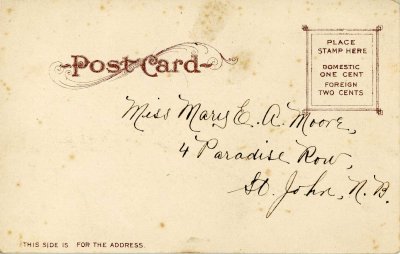 Post Card
PLACE
STAMP HERE
DOMESTIC
ONE CENT
FOREIGN
TWO CENTS
Miss Mary E. A. Moore,
4 Paradise Row,
St. John, N.B.
THIS SIDE IS FOR THE ADDRESS.